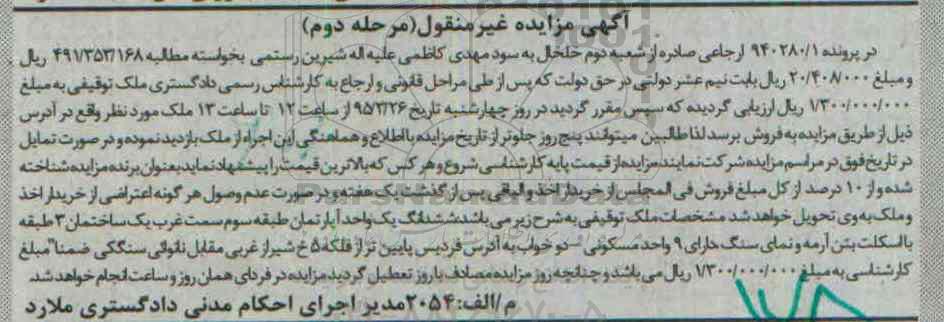 آگهی مزایده غیر منقول(مرحله دوم)
در پرونده ۹۴۰۲۸۰/۱ ارجاعی صادره از شعبه دوم خلخال به سود مهدی کاظمی علیه اله شیرین رستمی بخواسته مطالبه ۴۹۱/۳۵۳/۱۶۸ ریال
و مبلغ ۲۰/۴۰۸/۰۰۰ ریال بابت نیم عشر دولتی در حق دولت که پس از طی مراحل قانونی و ارجاع به کارشناس رسمی دادگستری ملک توقیفی به مبلغ
۱/۳۰۰/۰۰۰/۰۰۰ ریال ارزیابی گردیده که سپس مقرر گردید در روز چهارشنبه تاریخ ۹۵/۲/۲۶ از ساعت ۱۲ تا ساعت ۱۳ ملک مورد نظر واقع در آدرس
ذیل از طریق مزایده به فروش برسد لذا طالبین میتوانند پنج روز جلوتر از تاریخ مزایده با اطلاع و هماهنگی این اجراء از ملک بازدید نموده و در صورت تمایل
در تاریخ فوق در مراسم مزایده شرکت نمایند مزایده از قیمت پایه کارشناسی شروع و هر کس که بالاترین قیمت را پیشنهاد نماید بعنوان برنده مزایده شناخته
شده و از ۱۰ درصد از کل مبلغ فروش فی المجلس از خریدار اخذ و الباقی پس از گذشت یک هفته و در صورت عدم وصول هر گونه اعتراضی از خریدار اخذ
و ملک به وی تحویل خواهد شد مشخصات ملک توقیفی به شرح زیر می باشد ششدانگ یک واحد آپارتمان طبقه سوم سمت غرب یک ساختمان ۳ طبقه
با اسکلت بتن آرمه و نمای سنگ دارای ۹ واحد مسکونی دو خواب به آدرس فردیس پایین تر از فلکه ۵ خ شیراز غربی مقابل نانوائی سنگکی ضمنا" مبلغ
کارشناسی به مبلغ ۱/۳۰۰/۰۰۰/۰۰۰ ریال می باشد و چنانچه روز مزایده مصادف با روز تعطیل گردید مزایده در فردای همان روز و ساعت انجام خواهد شد.
م/الف:۲۰۵۴ مدیر اجرای احکام مدنی دادگستری ملارد
۱۷۸